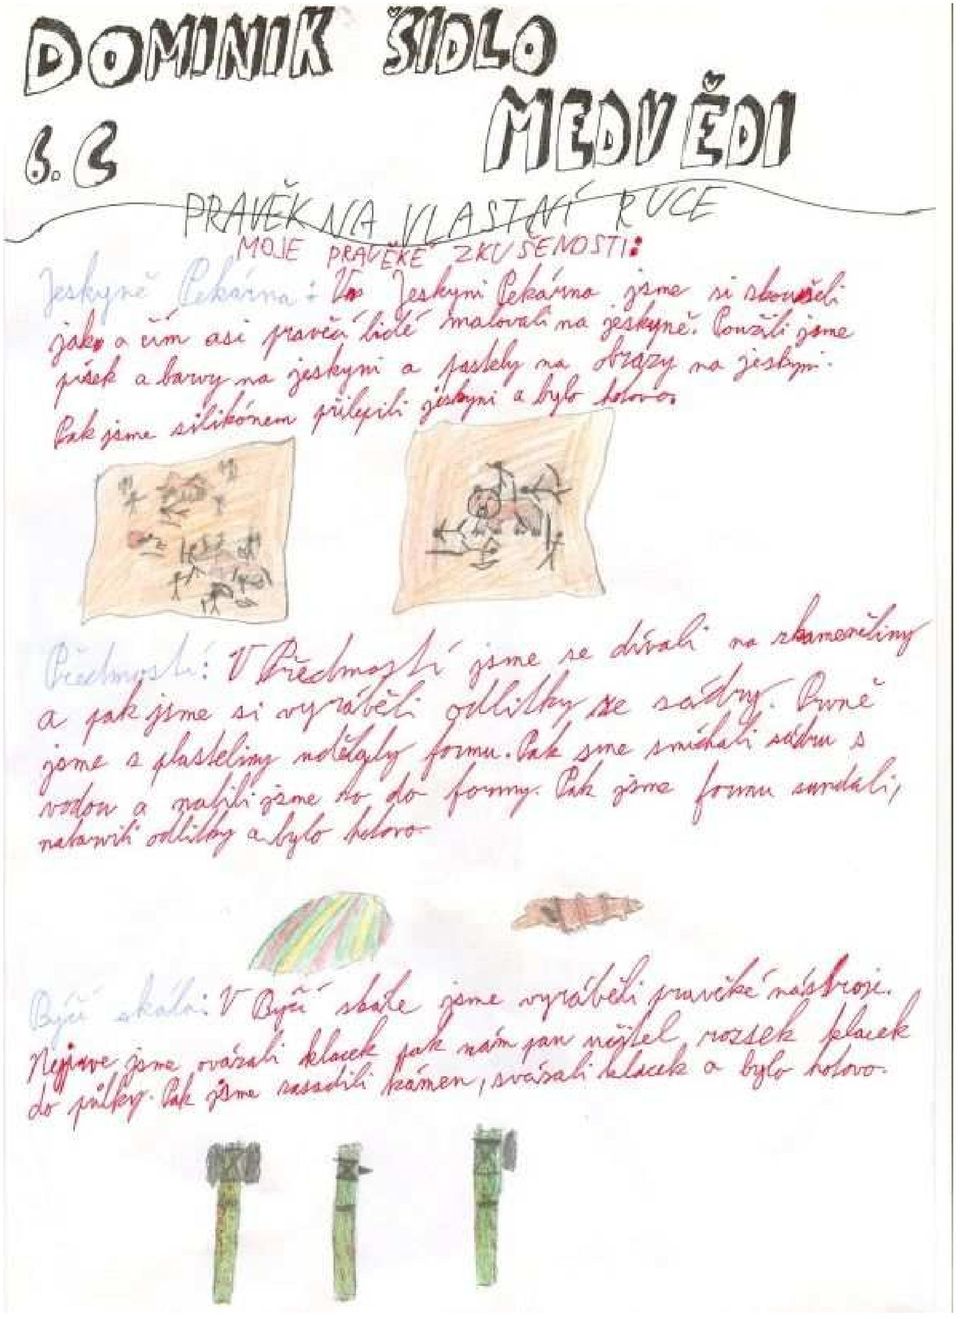 DOMINIK ŠIDLO
MEDVĚDI
6. C
PRAVĚK NA VLASTNÍ RUCE
MOJE PRAVĚKÉ ZKUŠENOSTI:
Jeskyně Pekárna: V Jeskyni Pekárna jsme si zkoušeli
jak a čím asi pravěcí lidé malovali na jeskyně. Použili jsme
písek a barvy na jeskyni a pastely na obrazy na jeskyni.
Pak jsme silikónem přilepili jeskyni a bylo hotovo.
Předmostí: V Předmostí jsme se dívali na zkameněliny
a pak jsme si vyráběli odlitky ze sádry. Prvně
jsme s plasteliny udělaly formu. Pak sme smíchali sádru s
vodou a nalili jsme to do formy. Pak jsme formu sundali,
nabarvili odlitky a bylo hotovo.
Býčí skála: V Býčí skále jsme vyráběli pravěké nástroje.
Nejprve jsme ovázali klacek pak nám pan učitel rozsek klacek
do půlky. Pak jsme zasadili kámen, svázali klacek a bylo hotovo.